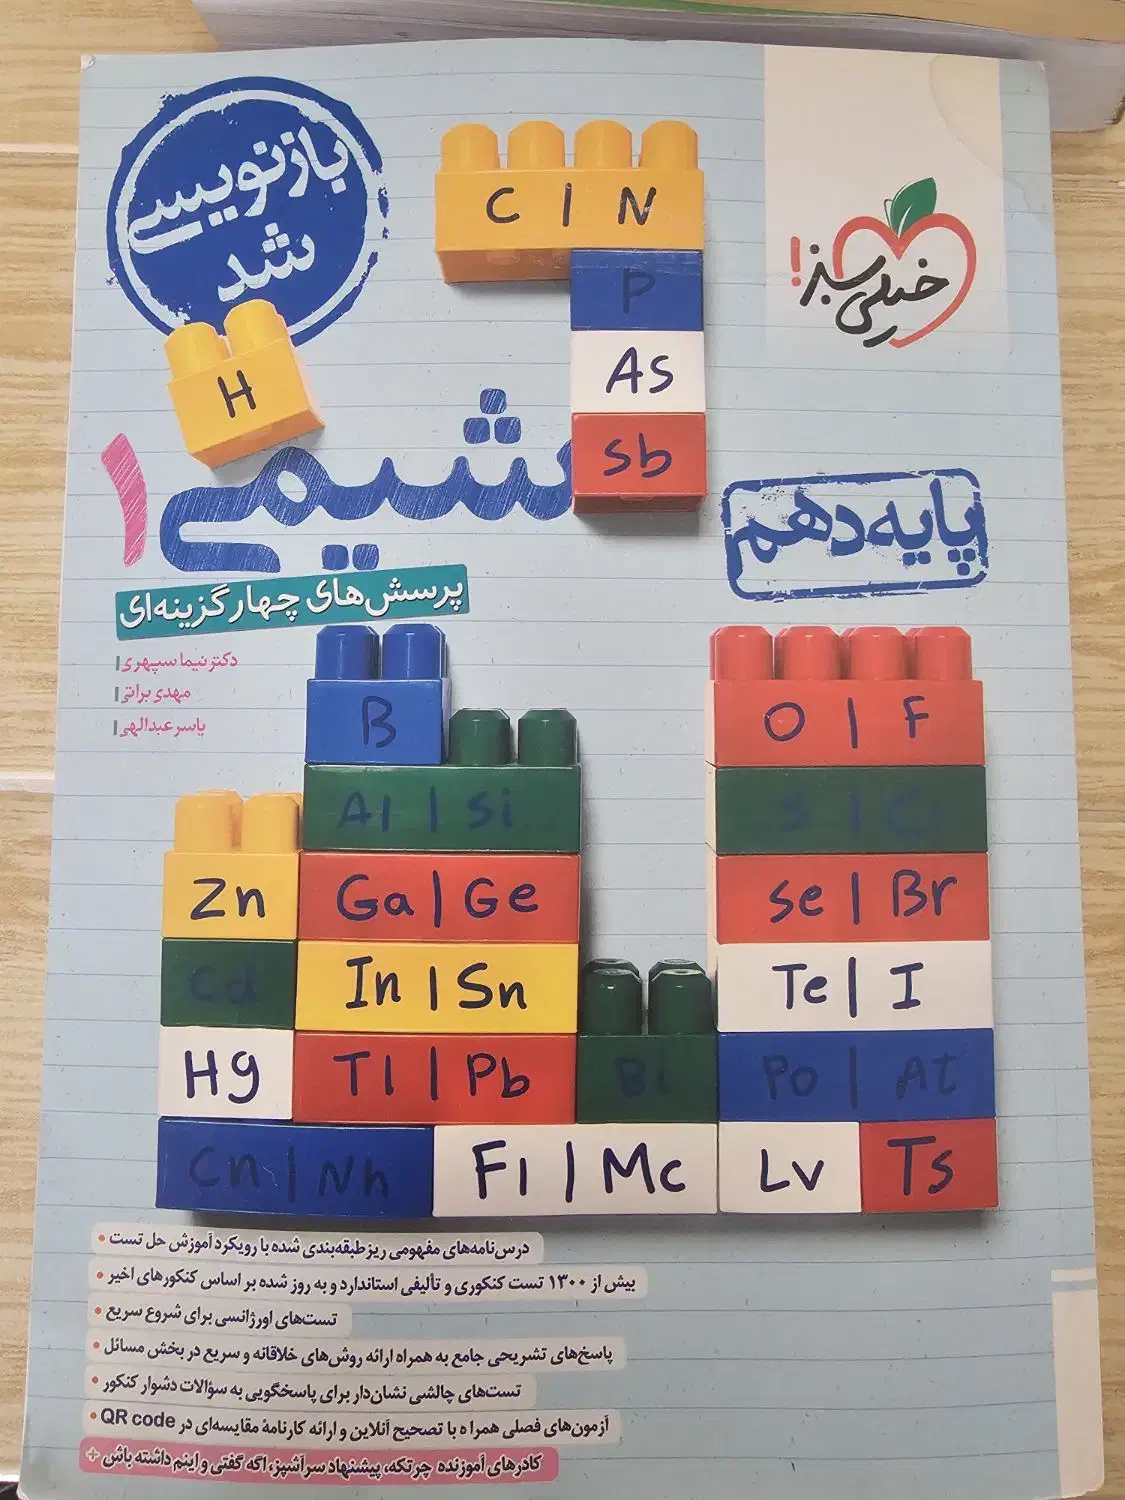 بازنویسی
شد
خیلی سبز!
C | N
P
As
Sb
H
شیمی ۱
پایه دهم
پرسش‌های چهارگزینه‌ای
دکتر نیما سپهری
مهدی براتی
یاسر عبدالهی
B
Al | Si
Zn
Ga | Ge
Cd
In | Sn
Hg
Tl | Pb
Bi
O | F
S | Cl
Se | Br
Te | I
Po | At
Cn | Nh
Fl | Mc
Lv
Ts
درس‌نامه‌های مفهومی ریزطبقه‌بندی شده با رویکرد آموزش حل تست
بیش از ۱۳۰۰ تست کنکوری و تألیفی استاندارد و به روز شده بر اساس کنکورهای اخیر
تست‌های اورژانسی برای شروع سریع
پاسخ‌های تشریحی جامع به همراه ارائه روش‌های خلاقانه و سریع در بخش مسائل
تست‌های چالشی نشان‌دار برای پاسخگویی به سؤالات دشوار کنکور
آزمون‌های فصلی همراه با تصحیح آنلاین و ارائه کارنامهٔ مقایسه‌ای در QR code
کادرهای آموزنده چرتکه، پیشنهاد سرآشپز، اگه گفتی و اینم داشته باش +